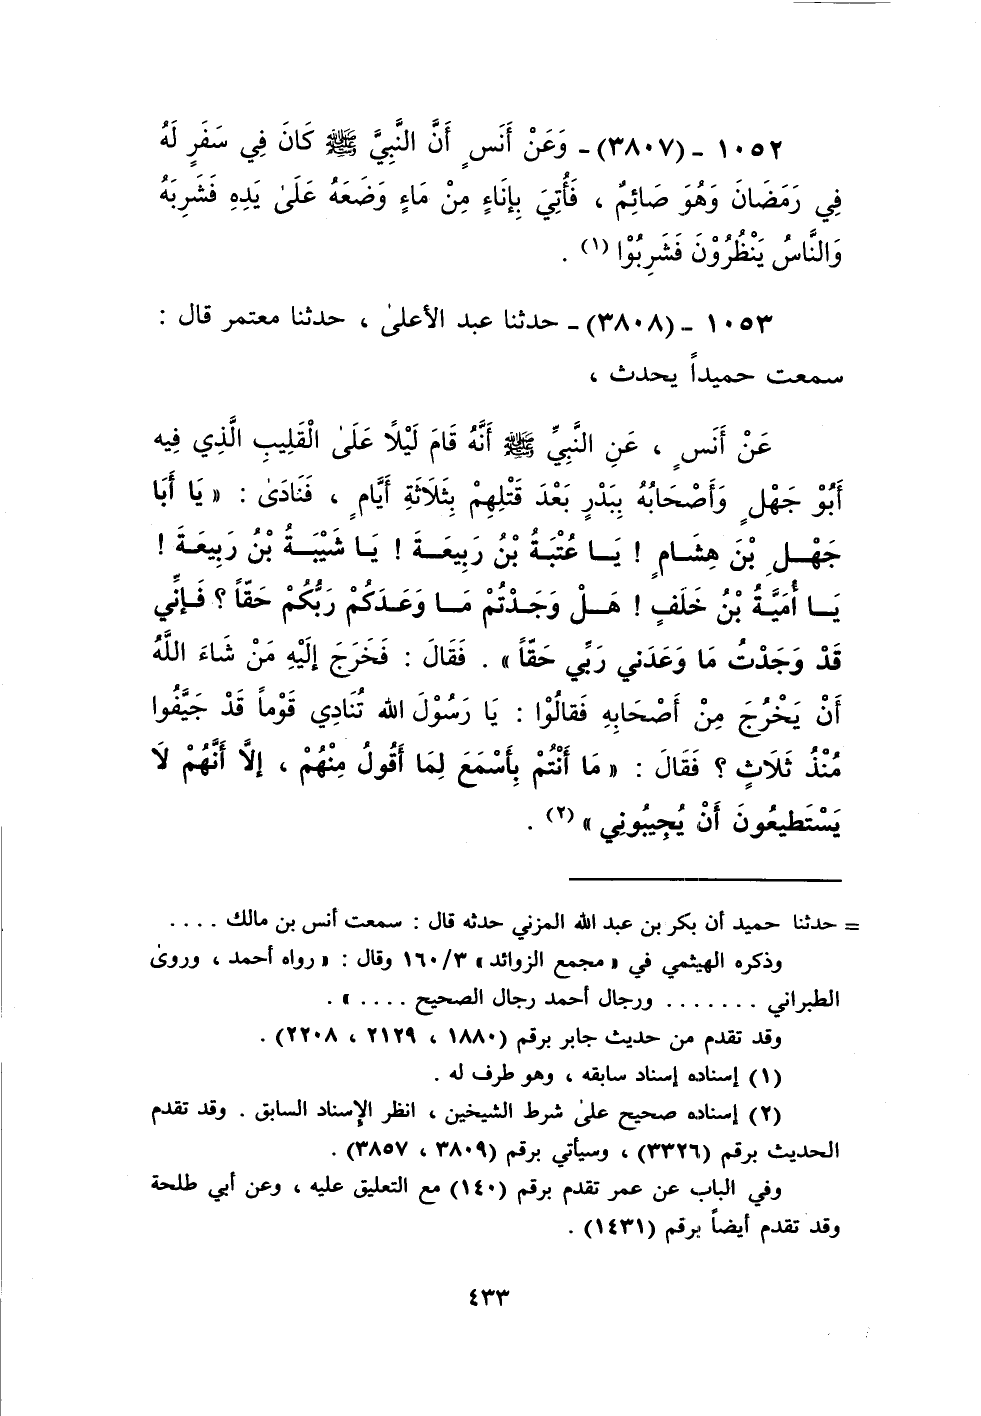 ١٠٥٢ - (٣٨٠٧) - وَعَنْ أَنَسٍ أَنَّ النَّبِيَّ ﷺ كَانَ فِي سَفَرٍ لَهُ
فِي رَمَضَانَ وَهُوَ صَائِمٌ ، فَأُتِيَ بِإنَاءٍ مِنْ مَاءٍ وَضَعَهُ عَلَىٰ يَدِهِ فَشَرِبَهُ
وَالنَّاسُ يَنْظُرُوْنَ فَشَرِبُوْا (١) .
١٠٥٣ - (٣٨٠٨) - حدثنا عبد الأعلىٰ ، حدثنا معتمر قال :
سمعت حميداً يحدث ،
عَنْ أَنَسٍ ، عَنِ النَّبِيِّ ﷺ أَنَّهُ قَامَ لَيْلًا عَلَىٰ الْقَلِيبِ الَّذِي فِيه
أَبُوْ جَهْلٍ وَأَصْحَابُهُ بِبَدْرٍ بَعْدَ قَتْلِهِمْ بِثَلَاثَةِ أَيَّامٍ ، فَنَادَىٰ : « يَا أَبَا
جَهْلِ بْنَ هِشَامٍ ! يَا عُتْبَةُ بْنُ رَبِيعَةَ ! يَا شَيْبَةُ بْنُ رَبِيعَةَ !
يَا أُمَيَّةُ بْنُ خَلَفٍ ! هَلْ وَجَدْتُمْ مَا وَعَدَكُمْ رَبُّكُمْ حَقّاً ؟ فَإنِّي
قَدْ وَجَدْتُ مَا وَعَدَنِي رَبِّي حَقّاً » . فَقَالَ : فَخَرَجَ إلَيْهِ مَنْ شَاءَ اللَّهُ
أَنْ يَخْرُجَ مِنْ أَصْحَابِهِ فَقالُوْا : يَا رَسُوْلَ الله تُنَادِي قَوْماً قَدْ جَيَّفُوا
مُنْذُ ثَلَاثٍ ؟ فَقَالَ : « مَا أَنْتُمْ بِأَسْمَعَ لِمَا أَقُولُ مِنْهُمْ ، إلَّا أَنَّهُمْ لَا
يَسْتَطِيعُونَ أَنْ يُجِيبُونِي » (٢) .
= حدثنا حميد أن بكر بن عبد الله المزني حدثه قال : سمعت أنس بن مالك ....
وذكره الهيثمي في « مجمع الزوائد » ١٦٠/٣ وقال : « رواه أحمد ، وروىٰ
الطبراني ....... ورجال أحمد رجال الصحيح .... » .
وقد تقدم من حديث جابر برقم (١٨٨٠ ، ٢١٢٩ ، ٢٢٠٨) .
(١) إسناده إسناد سابقه ، وهو طرف له .
(٢) إسناده صحيح علىٰ شرط الشيخين ، انظر الإسناد السابق . وقد تقدم
الحديث برقم (٣٣٢٦) ، وسيأتي برقم (٣٨٠٩ ، ٣٨٥٧) .
وفي الباب عن عمر تقدم برقم (١٤٠) مع التعليق عليه ، وعن أبي طلحة
وقد تقدم أيضاً برقم (١٤٣١) .
٤٣٣